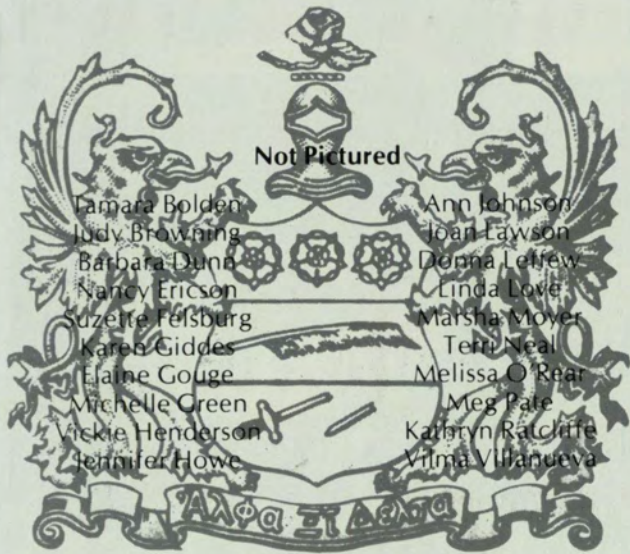 Not Pictured
Tamara Bolden
Judy Browning
Barbara Dunn
Nancy Ericson
Suzette Felsburg
Karen Giddes
Elaine Gouge
Michelle Green
Vickie Henderson
Jennifer Howe
Ann Johnson
Joan Lawson
Donna Lefrew
Linda Love
Marsha Moyer
Terri Neal
Melissa O'Rear
Meg Pate
Kathryn Ratcliffe
Vilma Villanueva
Ἀλφα Ξι Δελτα